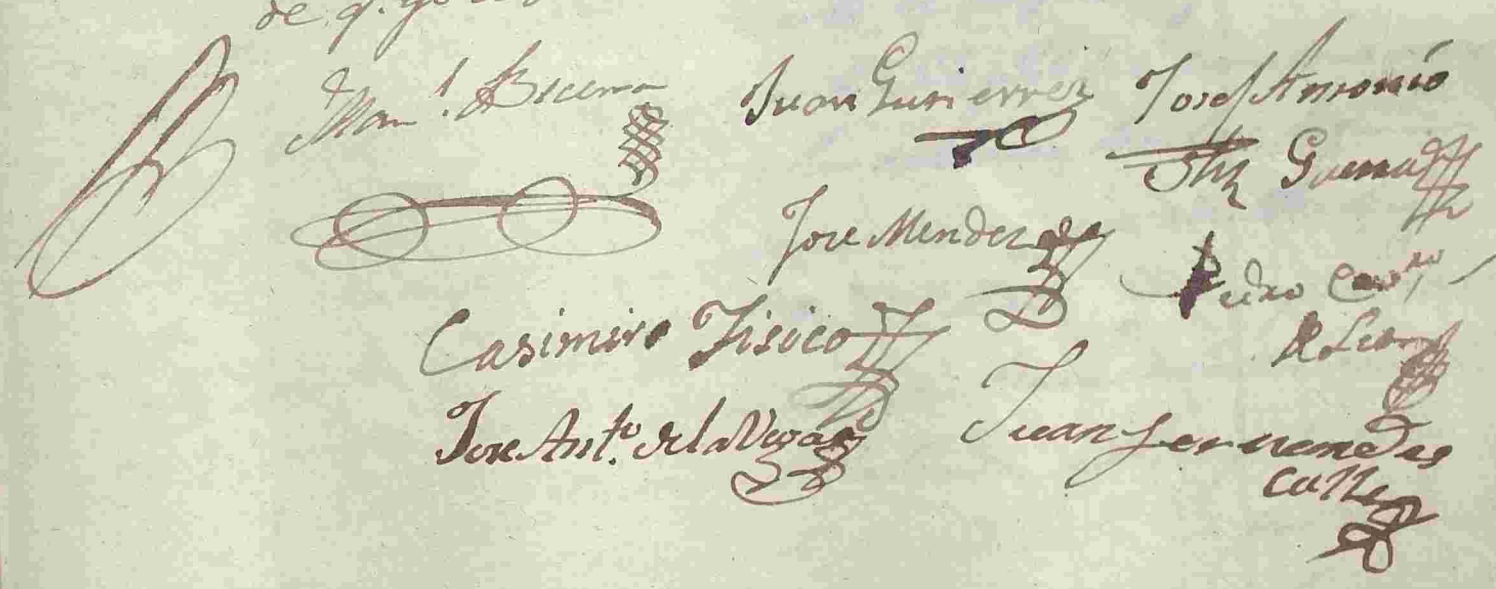 de q.
Man.l Juan Gutierrez Josef Antonio
Guerra
Jose Mendez
Pedro
Casimiro Fisico
Jose Ant.o de la Vega Juan fernendes
calle